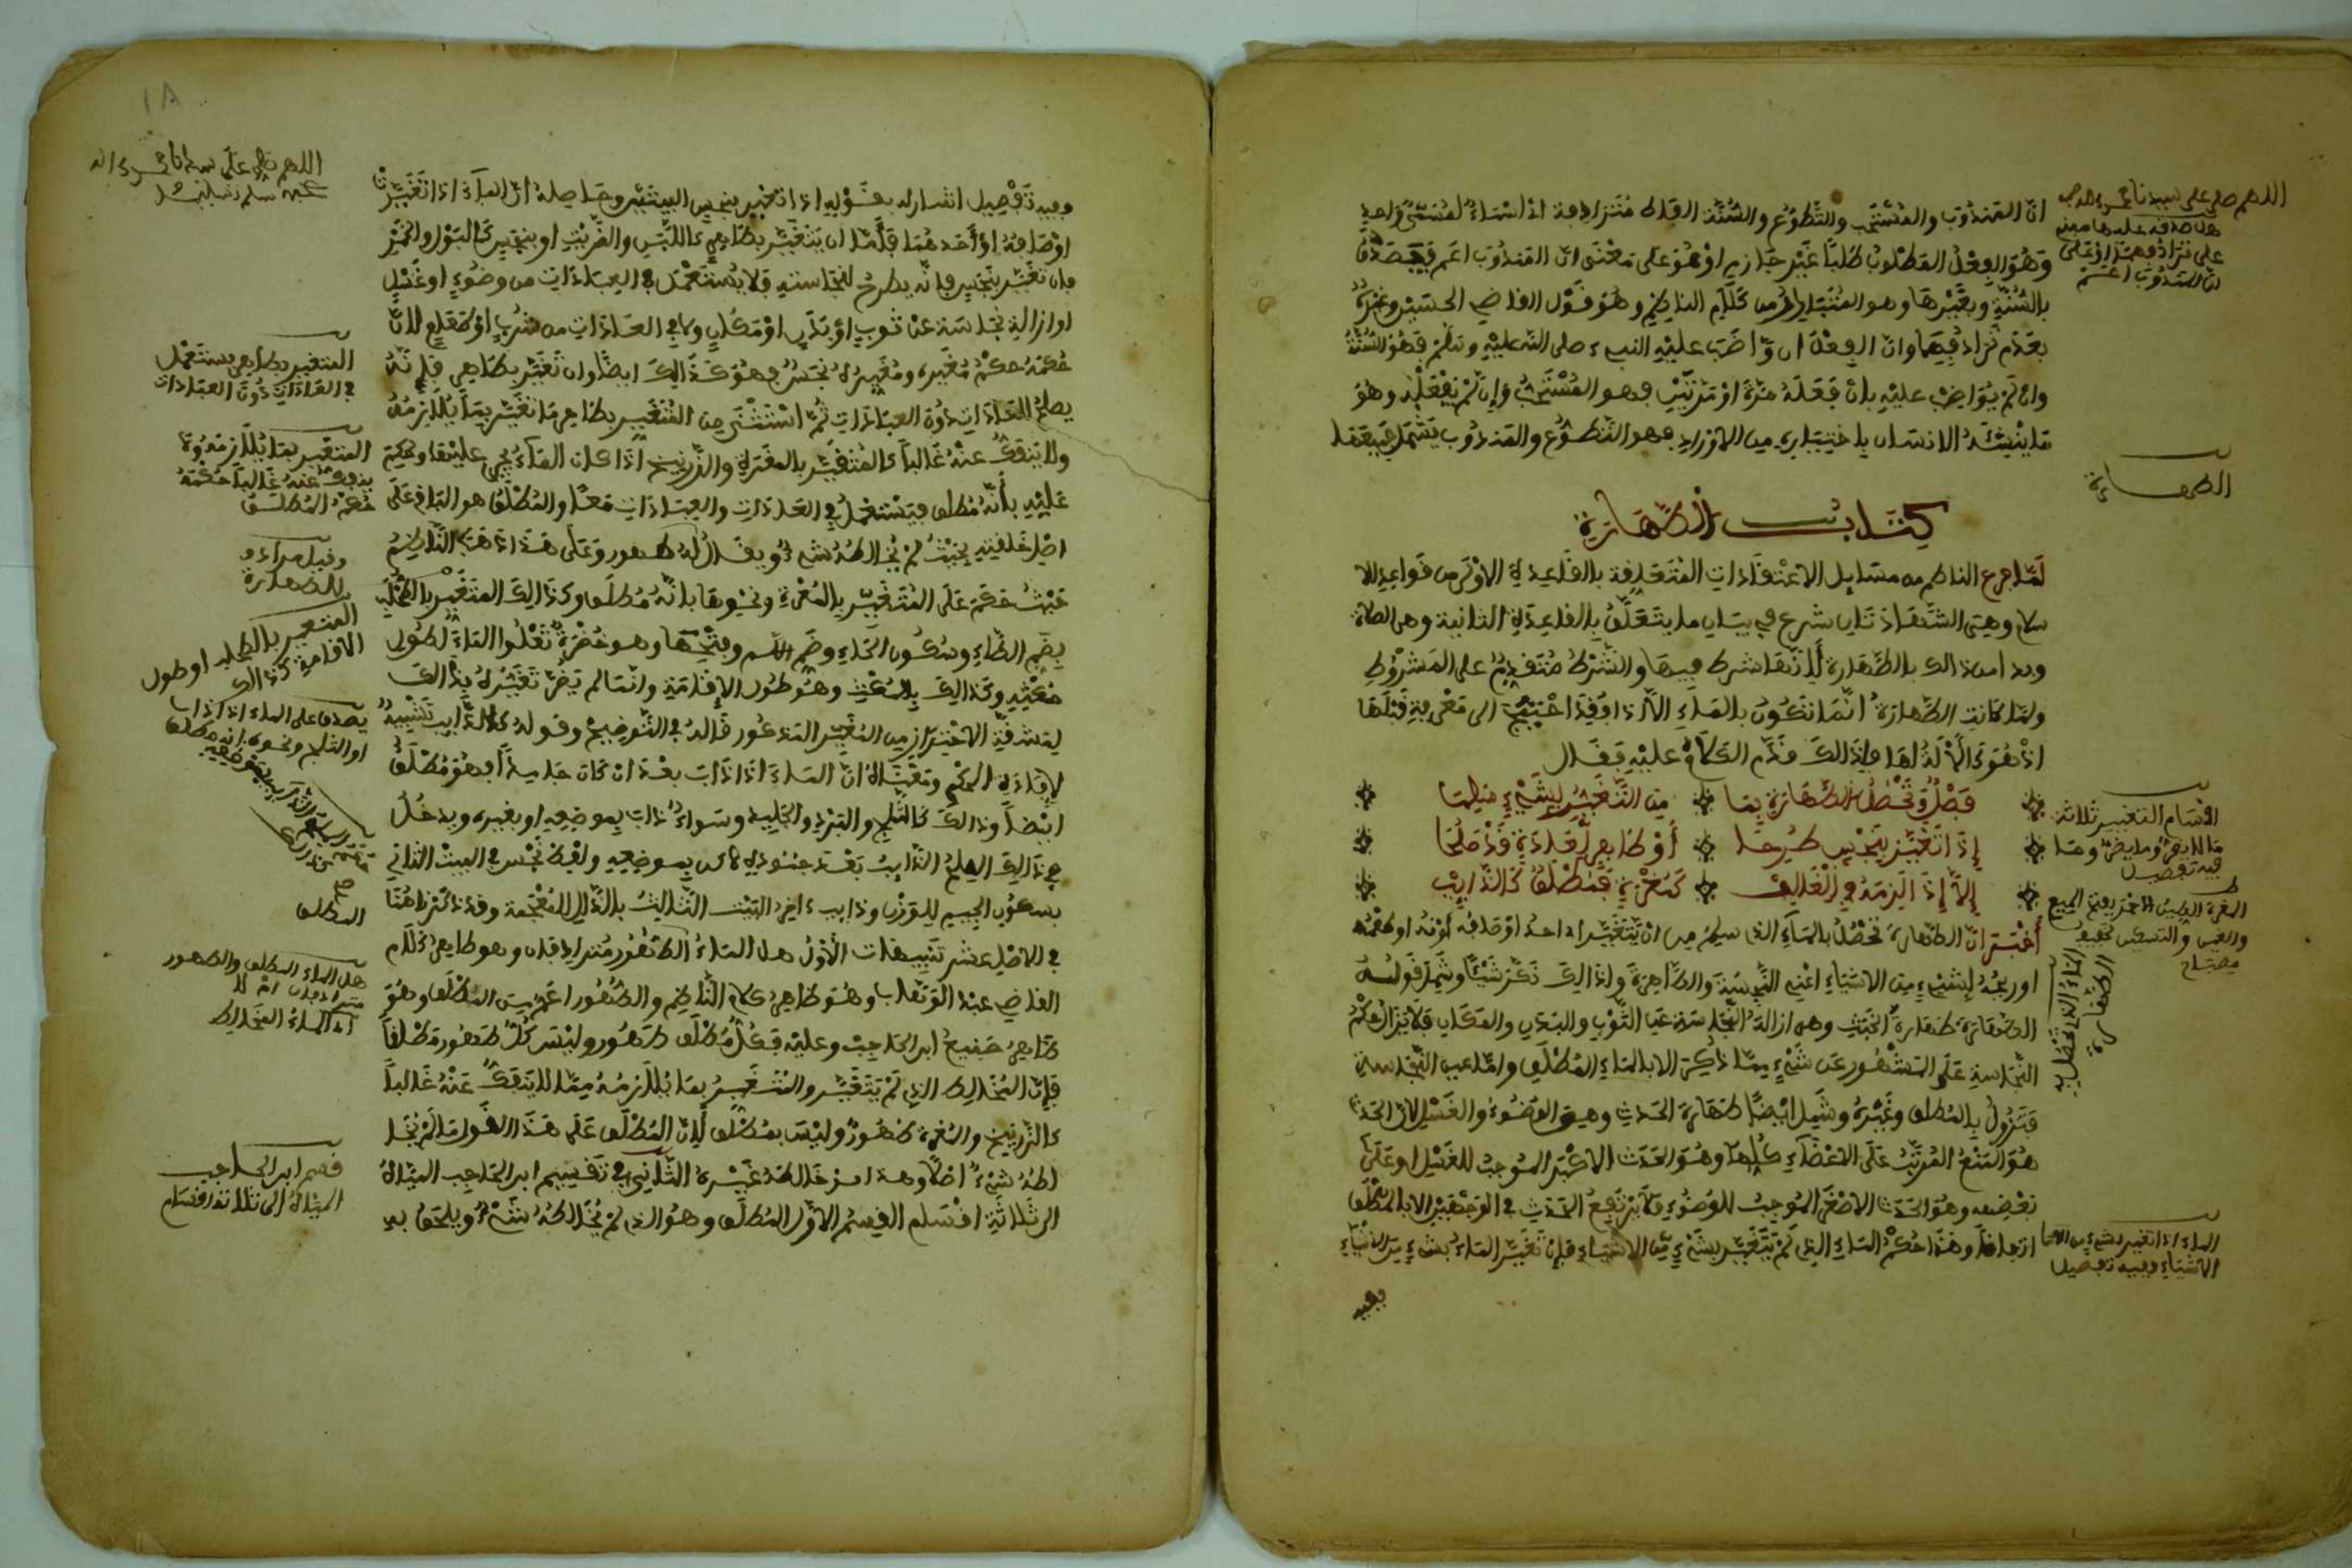 ان المندوب والمستحب والتطوع والسنة الفاظ مترادفة اذ اسماء لمسمى واحد
وهو الفعل المطلوب طلبا غير جازم او هو على معنى ان المندوب اعم فيصدق
بالسنة وبغيرها وهو المتبادر من كلام الناظم وهو قول القاضي الحسين وغيره
بعدم ترادفها وان الفعل ان واضب عليه النبيء صلى الله عليه وسلم فهو السنة
وان لم يواضب عليه بان فعله مرة او مرتين فهو المستحب وان لم يفعله وهو
ما ينشئه الانسان باختياره من الاوراد فهو التطوع والمندوب يشمل جميعها
كتاب الطهارة
لما فرغ الناظم من مسايل الاعتقادات المتعلقة بالقاعدة الاولى من قواعد الا
سلام وهي الشهادتان شرع في بيان ما يتعلق بالقاعدة الثانية وهي الصلاة
وبدا من ذالك بالطهارة لانها شرط فيها والشرط متقدم على المشروط
ولما كانت الطهارة انما تكون بالماء الا اذا فقد احتيج الى معرفة قبلها
اذ هو كالالة لها فلذالك قدم الكلام عليه فقال
فصل وتحصل الطهارة بما من التغير بشيء سلما
اذا تغير بنجس طرحا او طاهر لعادة قد صلحا
الا اذا لازمه في الغالب كمغرة فمطلق كالذايب
اخبر ان الطهارة تحصل بالماء السالم من ان يتغير احد اوصافه لونه او طعمه
او ريحه بشيء من الاشياء اعني النجسة والطاهرة ولذالك نكر شيئا وشمل قوله
الطهارة طهارة الخبث وهي ازالة النجاسة عن الثوب والبدن والمكان فلا يزال حكم
النجاسة على المشهور عن شيء مما ذكر الا بالماء المطلق واما عين النجاسة
فتزول بالمطلق وغيره وشمل ايضا طهارة الحدث وهي الوضوء والغسل لان الحدث
هو المنع المرتب على الاعضاء كلها وهو الحدث الاكبر الموجب للغسل او على
بعضها وهو الحدث الاصغر الموجب للوضوء فلا يرتفع الحدث في الوجهين الا بالمطلق
اتفاقا وهذا حكم الماء الذي لم يتغير بشيء من الاشياء فان تغير الماء بشيء من الاشياء
ففيه
اللهم صل على سيدنا محمد
الطهارة
اقسام التغيير ثلاثة
الماء الذي تحصل به
الطهارة
الماء اذا تغير بشيء من
الاشياء ففيه تفصيل
١٨
ففيه تفصيل اشار له بقوله اذا تغير بنجس البيتين وحاصله ان الماء اذا تغيرت
اوصافه او احدهما فاما ان يتغير بطاهر كاللبن والزيت او بنجس كالبول والخمر
فان تغير بنجس فانه يطرح لنجاسته فلا يستعمل في العبادات من وضوء او غسل
او ازالة نجاسة عن ثوب او بدن او مكان ولا في العادات من شرب او طعام لان
حكمه حكم مغيره ومغيره نجس فهو كذالك ايضا وان تغير بطاهر فانه
يصلح للعادات دون العبادات ثم استثنى من المتغير بطاهر ما تغير بما يلازمه
ولا ينفك عنه غالبا كالمتغير بالمغرة والزرنيخ اذا كان الماء يجري عليها وحكم
عليه بانه مطلق فيستعمل في العادات والعبادات معا والمطلق هو الباقي على
اصل خلقته بحيث لم يخالطه شيء ويقال له طهور وعلى هذا ذهب الناظم
حيث حكم على المتغير بالمغرة ونحوها بانه مطلق وكذالك المتغير بالطحلب
بضم الطاء وسكون الحاء وضم اللام وفتحها وهو خضرة تعلوا الماء لطول
مكثه وكذالك بالمكث وهو طول الاقامة وانما لم يضر تغيره بذالك
لمشقة الاحتراز من المغير المذكور قاله في التوضيح وقوله كالذايب تشبيه
لافادة الحكم ومعناه ان الماء اذا ذاب بعد ان كان جامدا فهو مطلق
ايضا وذالك كالثلج والبرد والجليد وسواء ذاب بموضعه او بغيره ويدخل
في ذالك الملح الذايب بعد جموده كان بموضعه ولفظ نجس في البيت الثاني
بسكون الجيم للوزن وذايب ءاخر البيت الثالث بالذال المعجمة وقد ذكرنا هنا
في الاصل عشر تنبيهات الاول هل الماء الطهور مترادفان وهو ظاهر كلام
القاضي عبد الوهاب وهو ظاهر كلام الناظم والطهور اعم من المطلق وهو
ظاهر صنيع ابن الحاجب وعليه فكل مطلق طهور وليس كل طهور مطلقا
فان المخالط الذي لم يتغير والمتغير بما يلازمه مما لا ينفك عنه غالبا
كالزرنيخ والمغرة طهور وليس بمطلق لان المطلق على هذا القول ما لم يخا
لطه شيء اصلا وهذا قد خالطه غيره الثاني في تقسيم ابن الحاجب المياه
الى ثلاثة اقسام القسم الاول المطلق وهو الذي لم يخالطه شيء ويلحق به
المتغير بطاهر يستعمل
في العادات دون العبادات
قسم ابن الحاجب
المياه الى ثلاثة اقسام